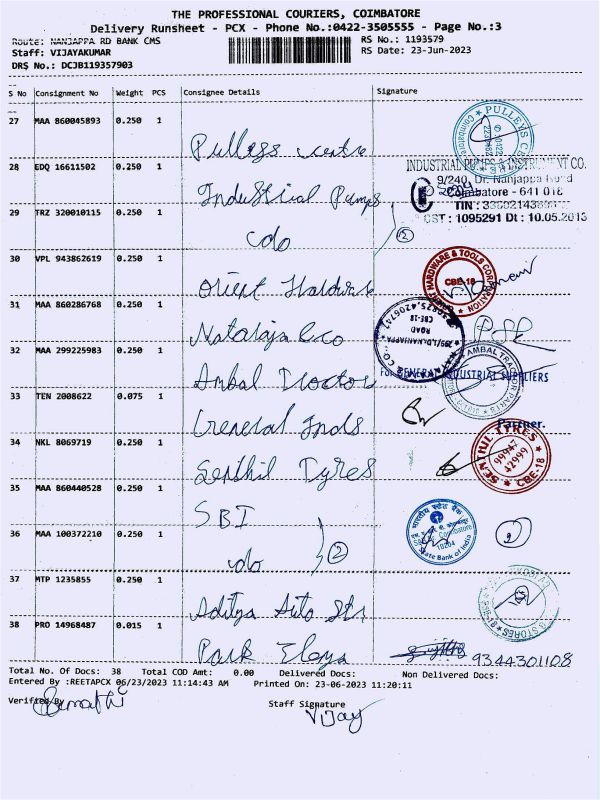 THE PROFESSIONAL COURIERS, COIMBATORE
Delivery Runsheet - PCX - Phone No.:0422-3505555 - Page No.:3
Route: NANJAPPA RD BANK CMS RS No.: 1193579
Staff: VIJAYAKUMAR RS Date: 23-Jun-2023
DRS No.: DCJB119357903
S No Consignment No Weight PCS Consignee Details Signature
27 MAA 860045893 0.250 1
Pulleys centre
PULLEYS CE
Coimbatore
28 EDQ 16611502 0.250 1
Industrial Pumps
INDUSTRIAL PUMPS & INSTRUMENT CO.
9/240, Dr. Nanjappa Road
Coimbatore - 641 018
TIN :
CST : 1095291 Dt : 10.05.2013
29 TRZ 320010115 0.250 1
c/o
2
30 VPL 943862619 0.250 1
Orient Hardware
ORIENT HARDWARE & TOOLS CORPORATION
CBE-18
31 MAA 860286768 0.250 1
Nataraja & co
NANJAPPA
ROAD
CBE-18
32 MAA 299225983 0.250 1
Ambal Tractor
AMBAL TRACTOR PARTS
For GENERAL INDUSTRIAL SUPPLIERS
33 TEN 2008622 0.075 1
General Inds
Partner.
34 NKL 8069719 0.250 1
Senthil Tyres
SENTHIL TYRES
99947
42999
CBE-18
35 MAA 860440528 0.250 1
SBI
भारतीय स्टेट बैंक
State Bank of India
2
36 MAA 100372210 0.250 1
c/o
2
37 MTP 1235855 0.250 1
Aditya Auto Strs
STORES
38 PRO 14968487 0.015 1
Park Elanza
9344301108
Total No. Of Docs: 38 Total COD Amt: 0.00 Delivered Docs: Non Delivered Docs:
Entered By :REETAPCX 06/23/2023 11:14:43 AM Printed On: 23-06-2023 11:20:11
Verified By Staff Signature
Vijay